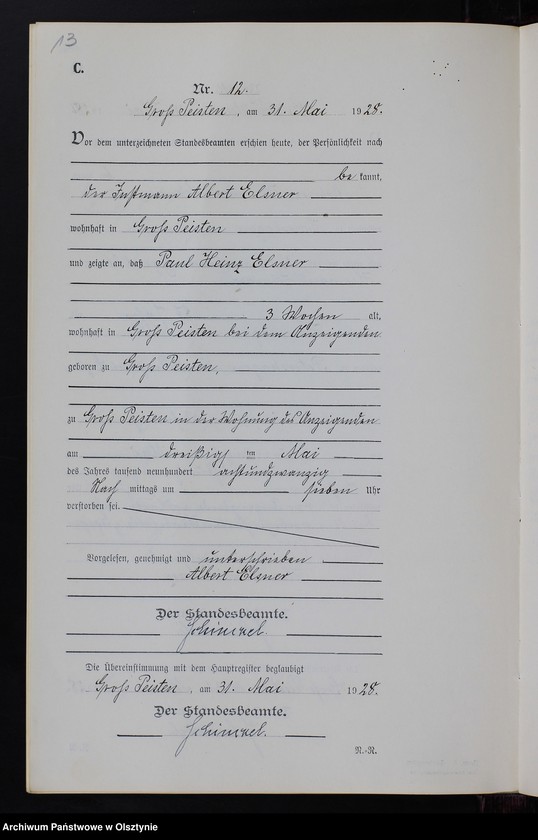 13
C.
Nr. 12.
Groß Peisten, am 31. Mai 1928.
Vor dem unterzeichneten Standesbeamten erschien heute, der Persönlichkeit nach
be kannt,
der Instmann Albert Elsner
wohnhaft in Groß Peisten
und zeigte an, daß Paul Heinz Elsner
3 Wochen alt,
wohnhaft in Groß Peisten bei dem Anzeigenden
geboren zu Groß Peisten,
zu Groß Peisten in der Wohnung des Anzeigenden
am dreißigsten Mai
des Jahres tausend neunhundert achtundzwanzig
Nach mittags um sieben Uhr
verstorben sei.
Vorgelesen, genehmigt und unterschrieben
Albert Elsner
Der Standesbeamte.
Schimkel.
Die Übereinstimmung mit dem Hauptregister beglaubigt
Groß Peisten, am 31. Mai 1928.
Der Standesbeamte.
Schimkel.
N.-R.
Archiwum Państwowe w Olsztynie